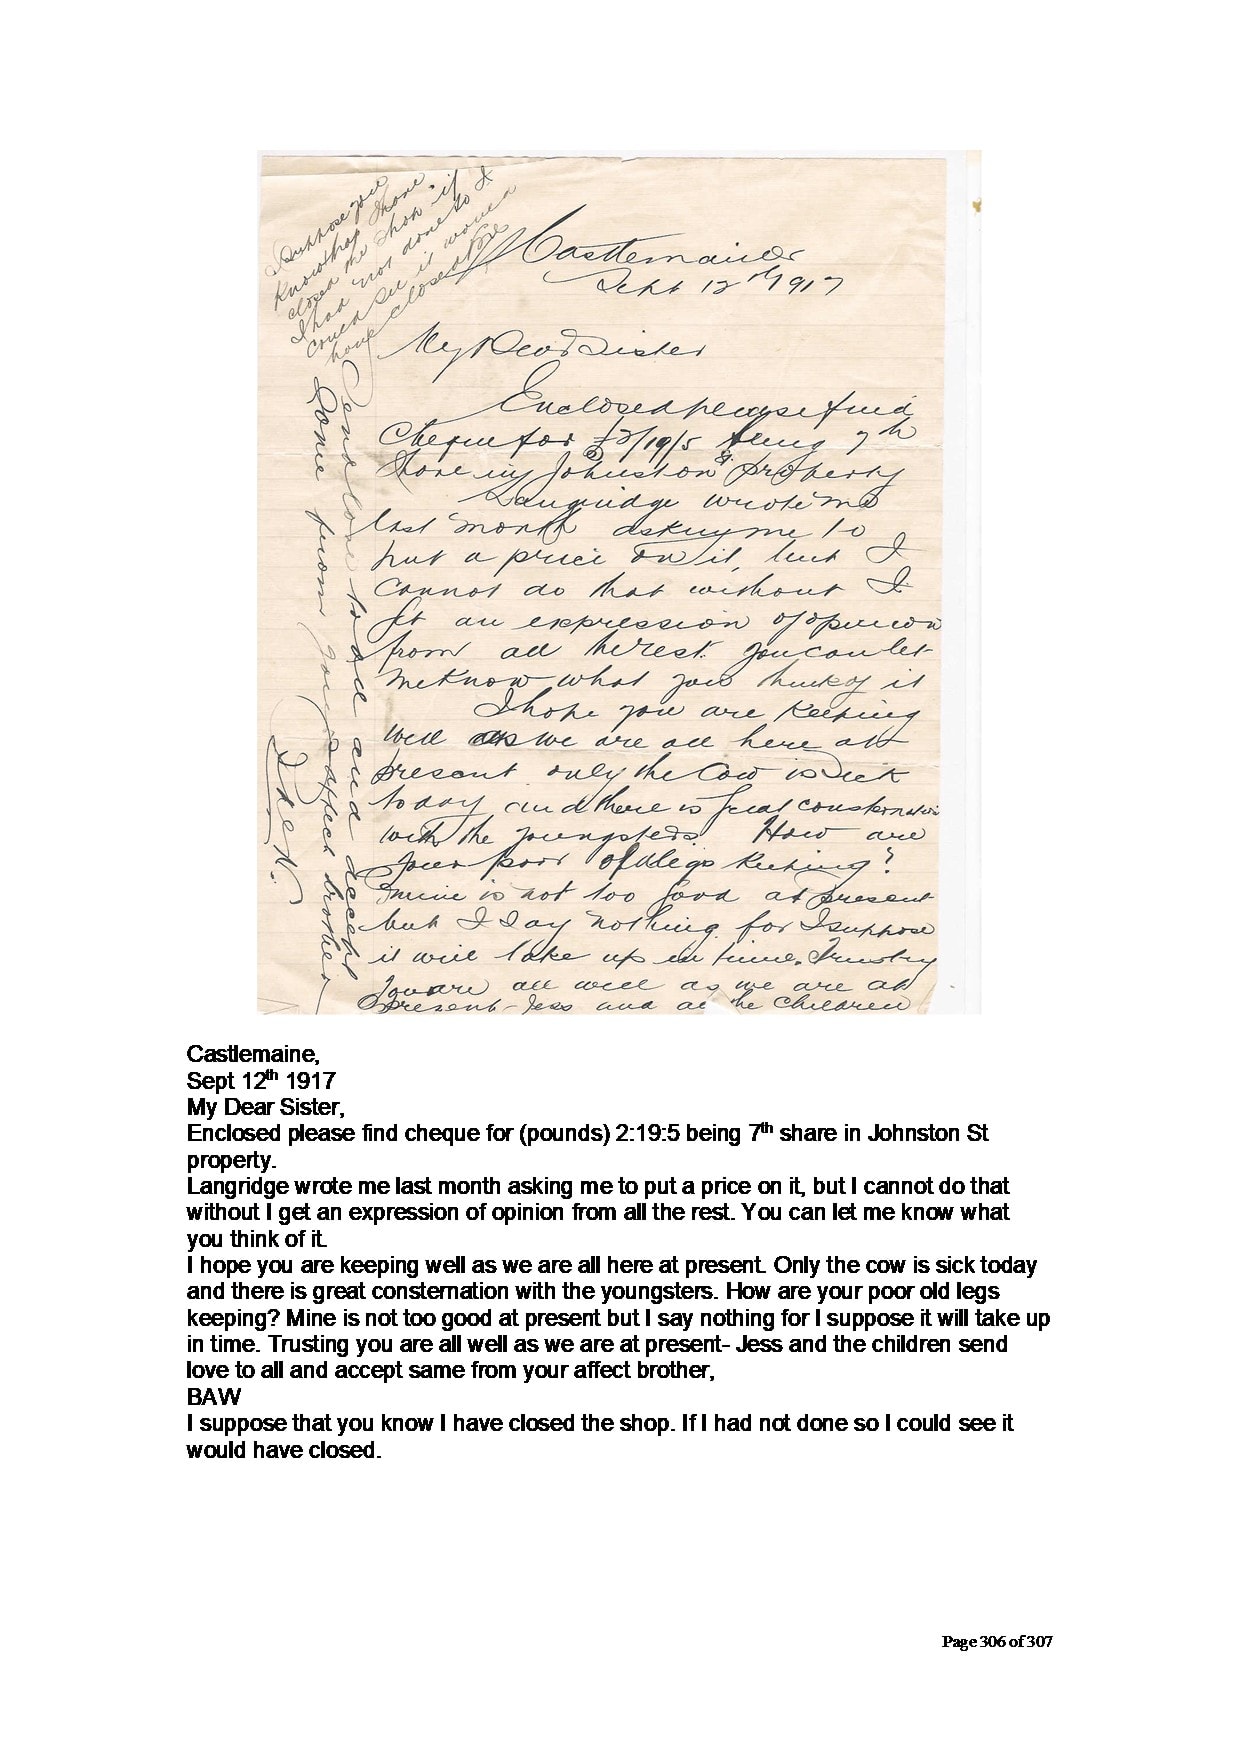 I suppose you
know that I have
closed the shop. if
I had not done so I
could see it would
have closed
Castlemaine
Sept 12th 1917
My Dear Sister
Enclosed please find
Cheque for £2/19/5 being 7th
share in Johnston St property
Langridge wrote me
last month asking me to
put a price on it, but I
cannot do that without I
get an expression of opinion
from all the rest. You can let
me know what you think of it
I hope you are keeping
well as we are all here at
present only the Cow is sick
today and there is great consternation
with the youngsters. How are
your poor old legs keeping?
mine is not too good at present
but I say nothing for I suppose
it will take up in time. Trusting
you are all well as we are at
present – Jess and all the children
send love to all and accept
same from your affect brother
Castlemaine,
Sept 12th 1917
My Dear Sister,
Enclosed please find cheque for (pounds) 2:19:5 being 7th share in Johnston St
property.
Langridge wrote me last month asking me to put a price on it, but I cannot do that
without I get an expression of opinion from all the rest. You can let me know what
you think of it.
I hope you are keeping well as we are all here at present. Only the cow is sick today
and there is great consternation with the youngsters. How are your poor old legs
keeping? Mine is not too good at present but I say nothing for I suppose it will take up
in time. Trusting you are all well as we are at present- Jess and the children send
love to all and accept same from your affect brother,
BAW
I suppose that you know I have closed the shop. If I had not done so I could see it
would have closed.
Page 306 of 307